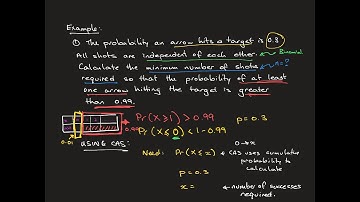 Example:
① The probability an arrow hits a target is 0.3
All shots are independent of each other → Binomial
Calculate the minimum number of shots → n=?
required so that the probability of at least
one arrow hitting the target is greater
than 0.99.
Pr(X≥1) > 0.99
p = 0.3
0.01
0.99
Pr(X≤0) < 1-0.99
0→x
USING CAS:
Need: Pr(X≤x) ← CAS uses cumulative
probability to
calculate
p = 0.3
x = ← number of successes
required.